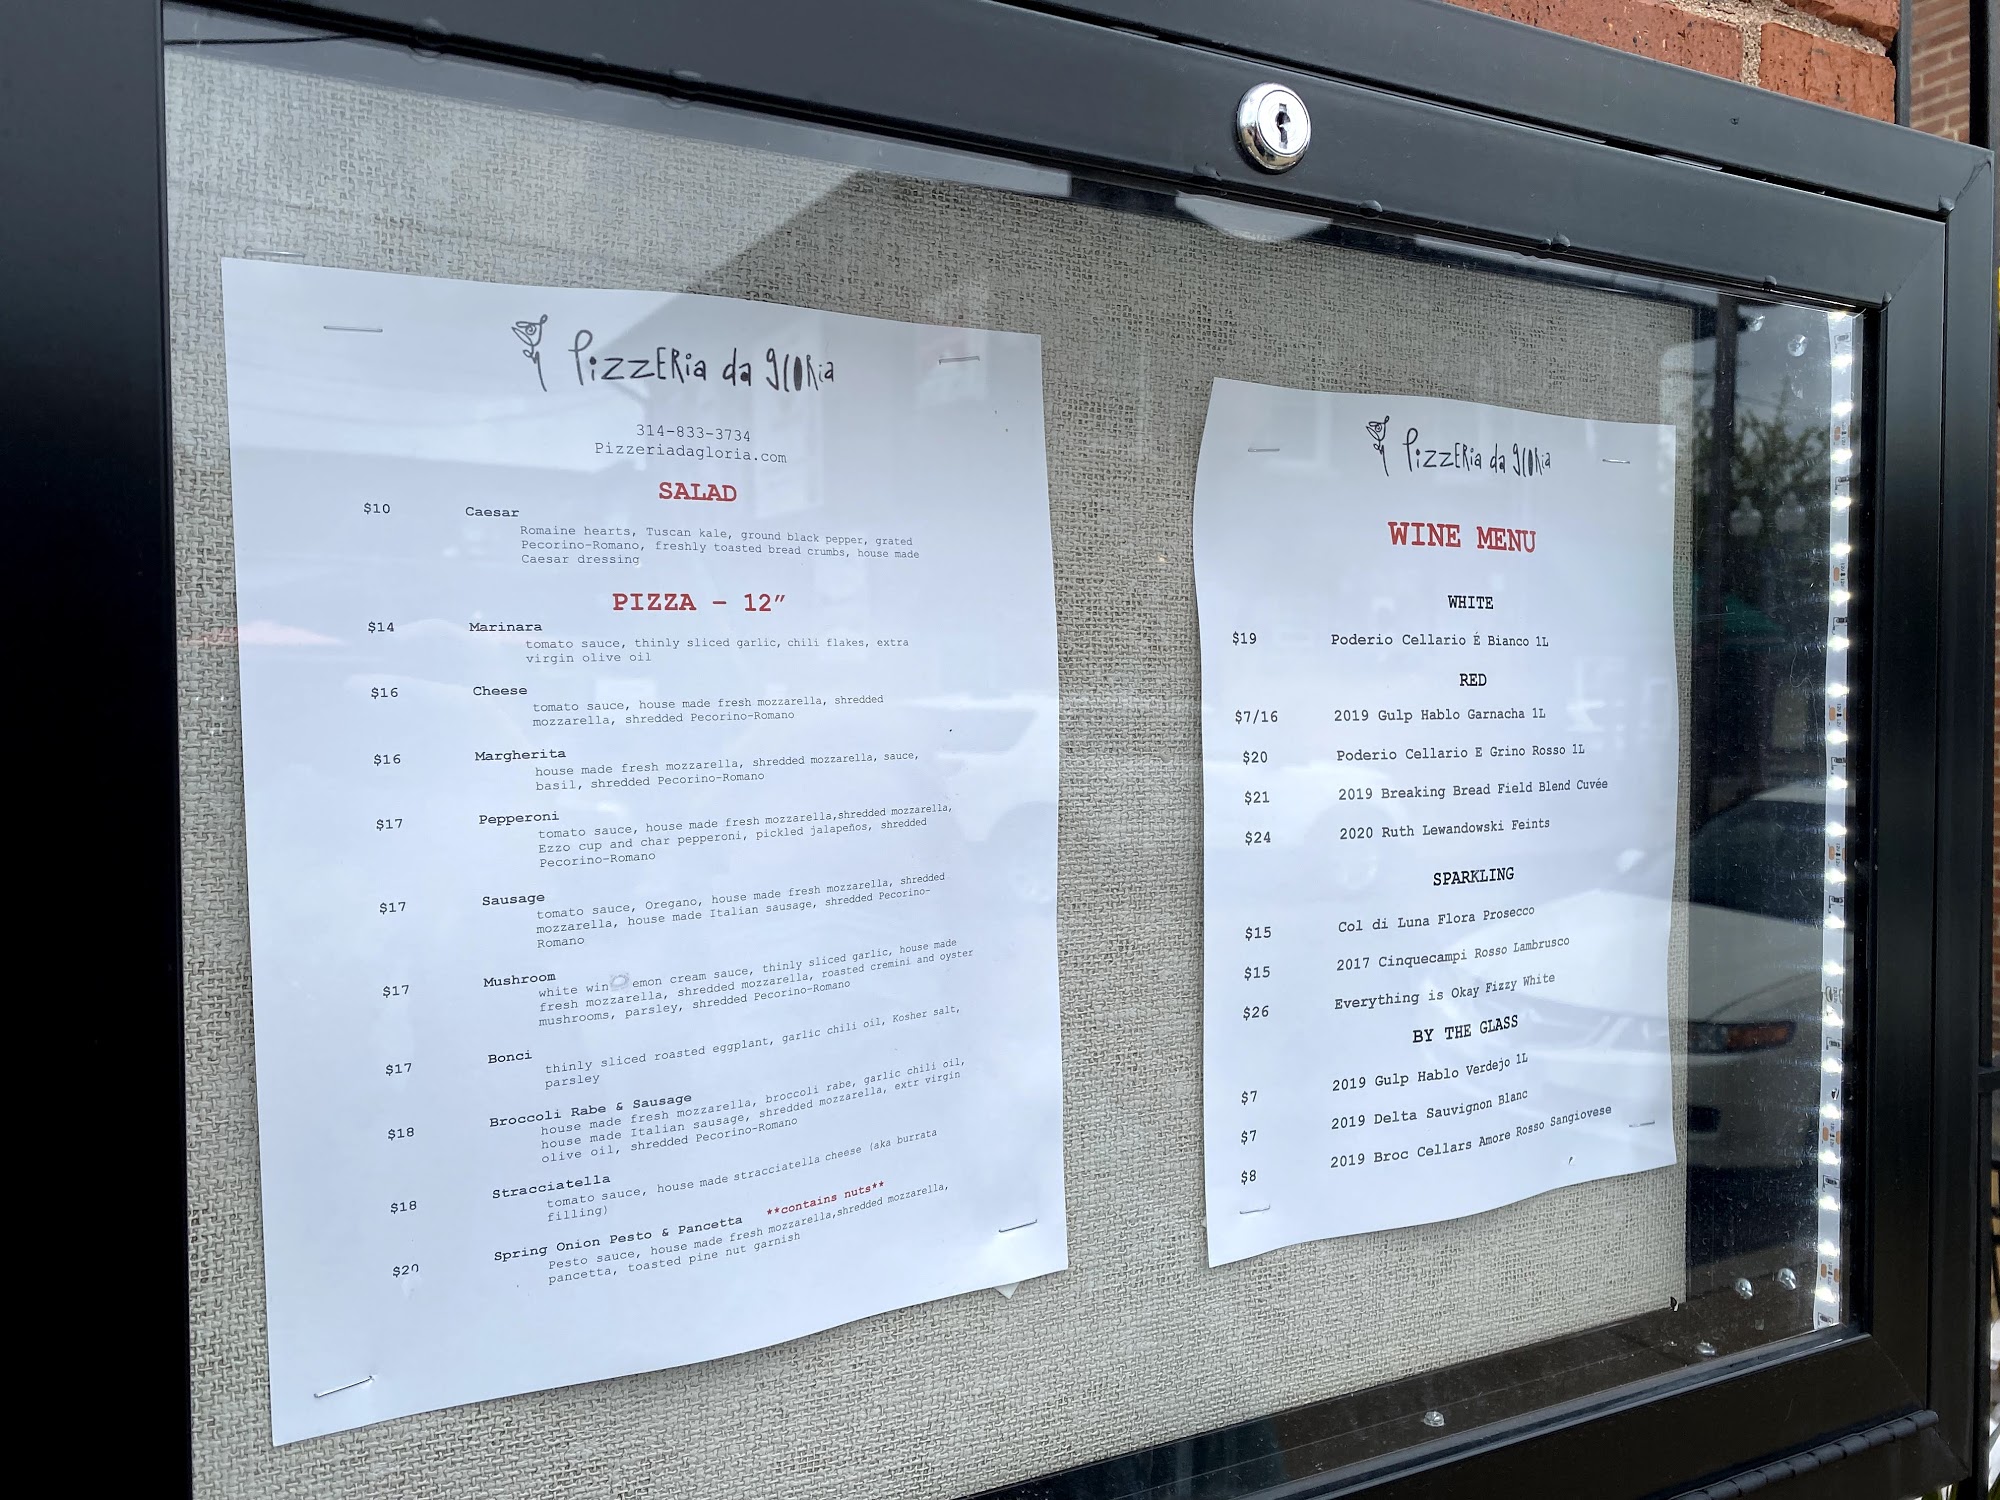 Pizzeria da gloria
314-833-3734
Pizzeriadagloria.com
SALAD
$10 Caesar
Romaine hearts, Tuscan kale, ground black pepper, grated
Pecorino-Romano, freshly toasted bread crumbs, house made
Caesar dressing
PIZZA - 12"
$14 Marinara
tomato sauce, thinly sliced garlic, chili flakes, extra
virgin olive oil
$16 Cheese
tomato sauce, house made fresh mozzarella, shredded
mozzarella, shredded Pecorino-Romano
$16 Margherita
house made fresh mozzarella, shredded mozzarella, sauce,
basil, shredded Pecorino-Romano
$17 Pepperoni
tomato sauce, house made fresh mozzarella,shredded mozzarella,
Ezzo cup and char pepperoni, pickled jalapeños, shredded
Pecorino-Romano
$17 Sausage
tomato sauce, Oregano, house made fresh mozzarella, shredded
mozzarella, house made Italian sausage, shredded Pecorino-
Romano
$17 Mushroom
white win emon cream sauce, thinly sliced garlic, house made
fresh mozzarella, shredded mozzarella, roasted cremini and oyster
mushrooms, parsley, shredded Pecorino-Romano
$17 Bonci
thinly sliced roasted eggplant, garlic chili oil, Kosher salt,
parsley
$18 Broccoli Rabe & Sausage
house made fresh mozzarella, broccoli rabe, garlic chili oil,
house made Italian sausage, shredded mozzarella, extr virgin
olive oil, shredded Pecorino-Romano
$18 Stracciatella
tomato sauce, house made stracciatella cheese (aka burrata
filling)
$20 Spring Onion Pesto & Pancetta **contains nuts**
Pesto sauce, house made fresh mozzarella,shredded mozzarella,
pancetta, toasted pine nut garnish
Pizzeria da gloria
WINE MENU
WHITE
$19 Poderio Cellario É Bianco 1L
RED
$7/16 2019 Gulp Hablo Garnacha 1L
$20 Poderio Cellario E Grino Rosso 1L
$21 2019 Breaking Bread Field Blend Cuvée
$24 2020 Ruth Lewandowski Feints
SPARKLING
$15 Col di Luna Flora Prosecco
$15 2017 Cinquecampi Rosso Lambrusco
$26 Everything is Okay Fizzy White
BY THE GLASS
$7 2019 Gulp Hablo Verdejo 1L
$7 2019 Delta Sauvignon Blanc
$8 2019 Broc Cellars Amore Rosso Sangiovese